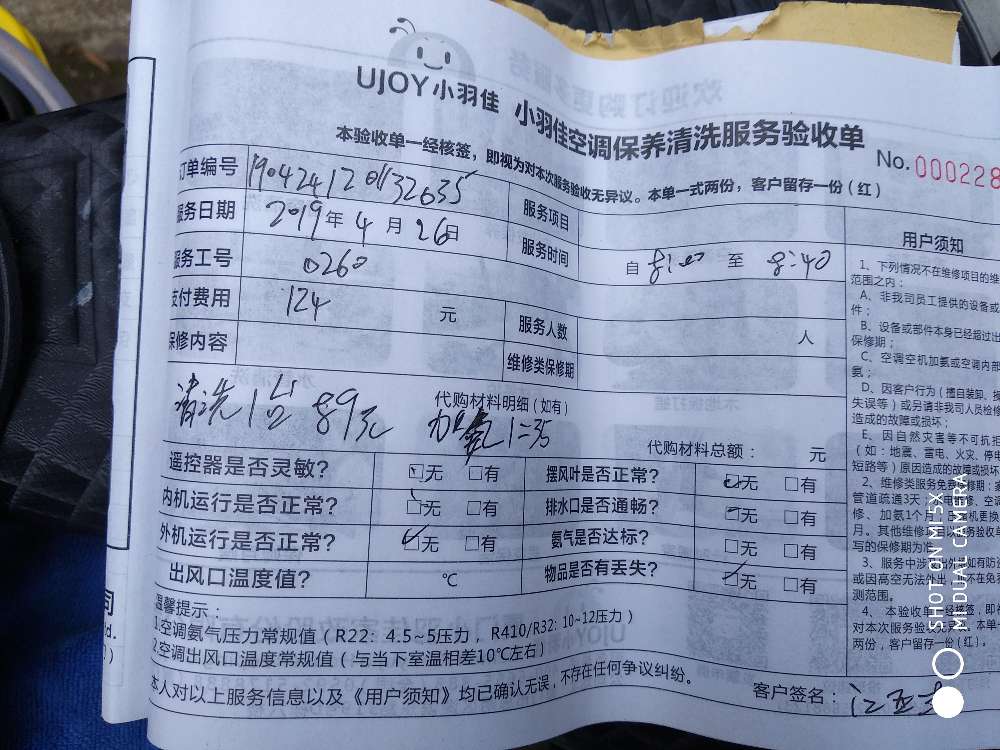 UJOY小羽佳 小羽佳空调保养清洗服务验收单
本验收单一经核签，即视为对本次服务验收无异议。本单一式两份，客户留存一份（红）
No.000228
订单编号 190424120132635 服务项目
服务日期 2019年4月26日 服务时间 自 8:00 至 8:40
服务工号 0260
支付费用 124 元 服务人数 人
保修内容 维修类保修期
代购材料明细（如有）
清洗1台 89元
1=35
代购材料总额： 元
遥控器是否灵敏？ 无 有 摆风叶是否正常？ 无 有
内机运行是否正常？ 无 有 排水口是否通畅？ 无 有
外机运行是否正常？ 无 有 氨气是否达标？ 无 有
出风口温度值？ ℃ 物品是否有丢失？ 无 有
温馨提示：
1.空调氨气压力常规值（R22: 4.5~5压力，R410/R32: 10~12压力）
2.空调出风口温度常规值（与当下室温相差10℃左右）
本人对以上服务信息以及《用户须知》均已确认无误，不存在任何争议纠纷。
客户签名：
用户须知
1、下列情况不在维修项目的维
范围之内：
A、非我司员工提供的设备或
件；
B、设备或部件本身已经超过出
保修期；
C、空调空机加氨或空调内部
氨；
D、因客户行为（擅自装卸、
失误等）或另请非我司人员检修
造成的故障或损坏；
E、因自然灾害等不可抗拒
（如：地震、雷电、火灾、停电
短路等）原因造成的故障或损坏
2、维修类服务免费
管道疏通3天
修、加氨1个月
月。其他维修项目以服务验收单
写的保修期为准
3、服务中涉
或因高空无法外出
测范围。
4、本验收单一经核签，即视
对本次服务验收无异议。本单一
两份，客户留存一份（红）。
SHOT ON MI 5X
MI DUAL CAMERA